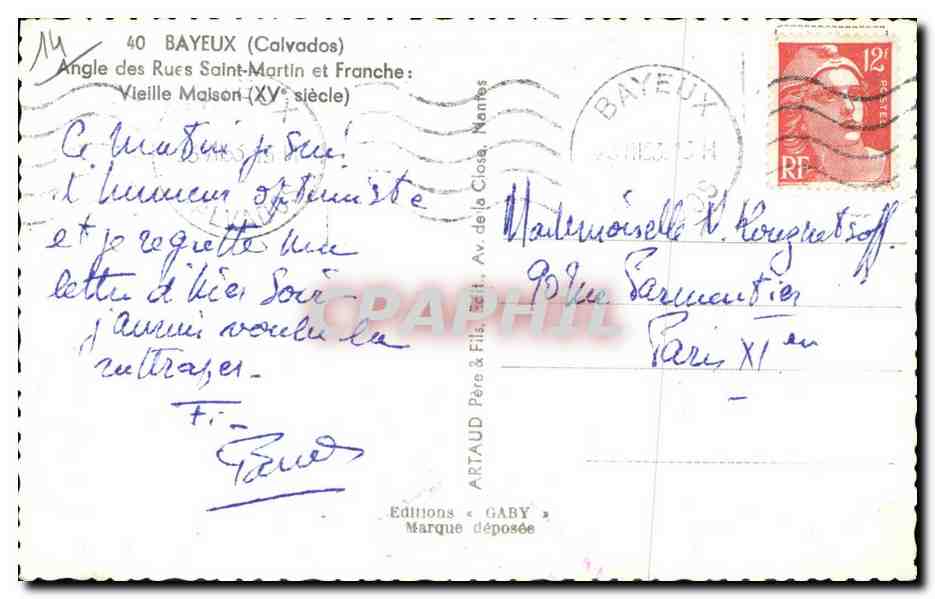 14
40 BAYEUX (Calvados)
Angle des Rues Saint-Martin et Franche:
Vieille Maison (XVe siècle)
Ce matin je suis
d'humeur optimiste
et je regrette ma
lettre d'hier soir
j'aurais voulu la
rattraper -
ARTAUD Père & Fils, Edit., Av. de la Close, Nantes
Editions « GABY »
Marque déposée
BAYEUX
12F
POSTES
RF
Mademoiselle
90 rue Parmentier
Paris XIem
CPAPHIL